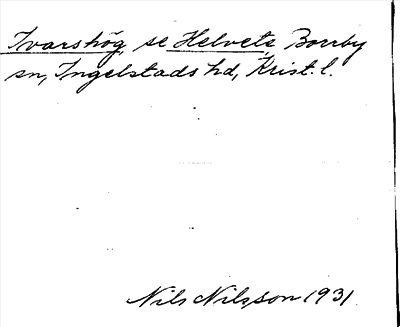 Ivarshög, se Helvete, Borrby
sn, Ingelstads hd, Krist. l.
Nils Nilsson 1931